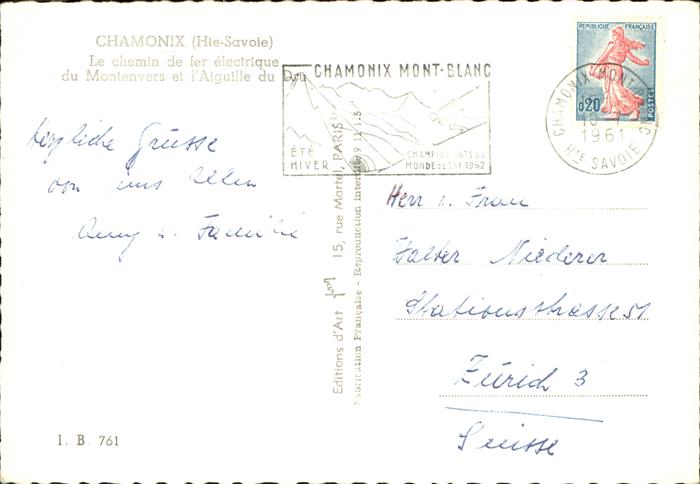 CHAMONIX (Hte-Savoie)
Le chemin de fer électrique
du Montenvers et l'Aiguille du Dru
Herzliche Grüsse
von uns Allen
u. Familie
I. B 761
Editions d'Art 15, rue Martel, PARIS
Fabrication Française - Reproduction Interdite
CHAMONIX MONT-BLANC
ÉTÉ
HIVER
CHAMPIONNATS DU
MONDE DE SKI 1962
REPUBLIQUE FRANÇAISE
0,20
POSTES
CHAMONIX MONT-BLANC
1961
HTE SAVOIE
Herr u. Frau
Walter Niederer
Stationsstrasse 51
Zürich 3
Suisse